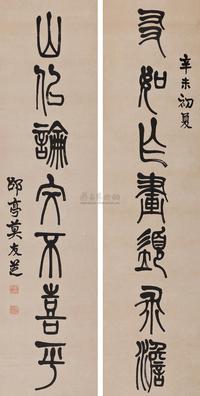 辛未初夏
友如作畫須求澹
山似論文不喜平
郘亭莫友芝